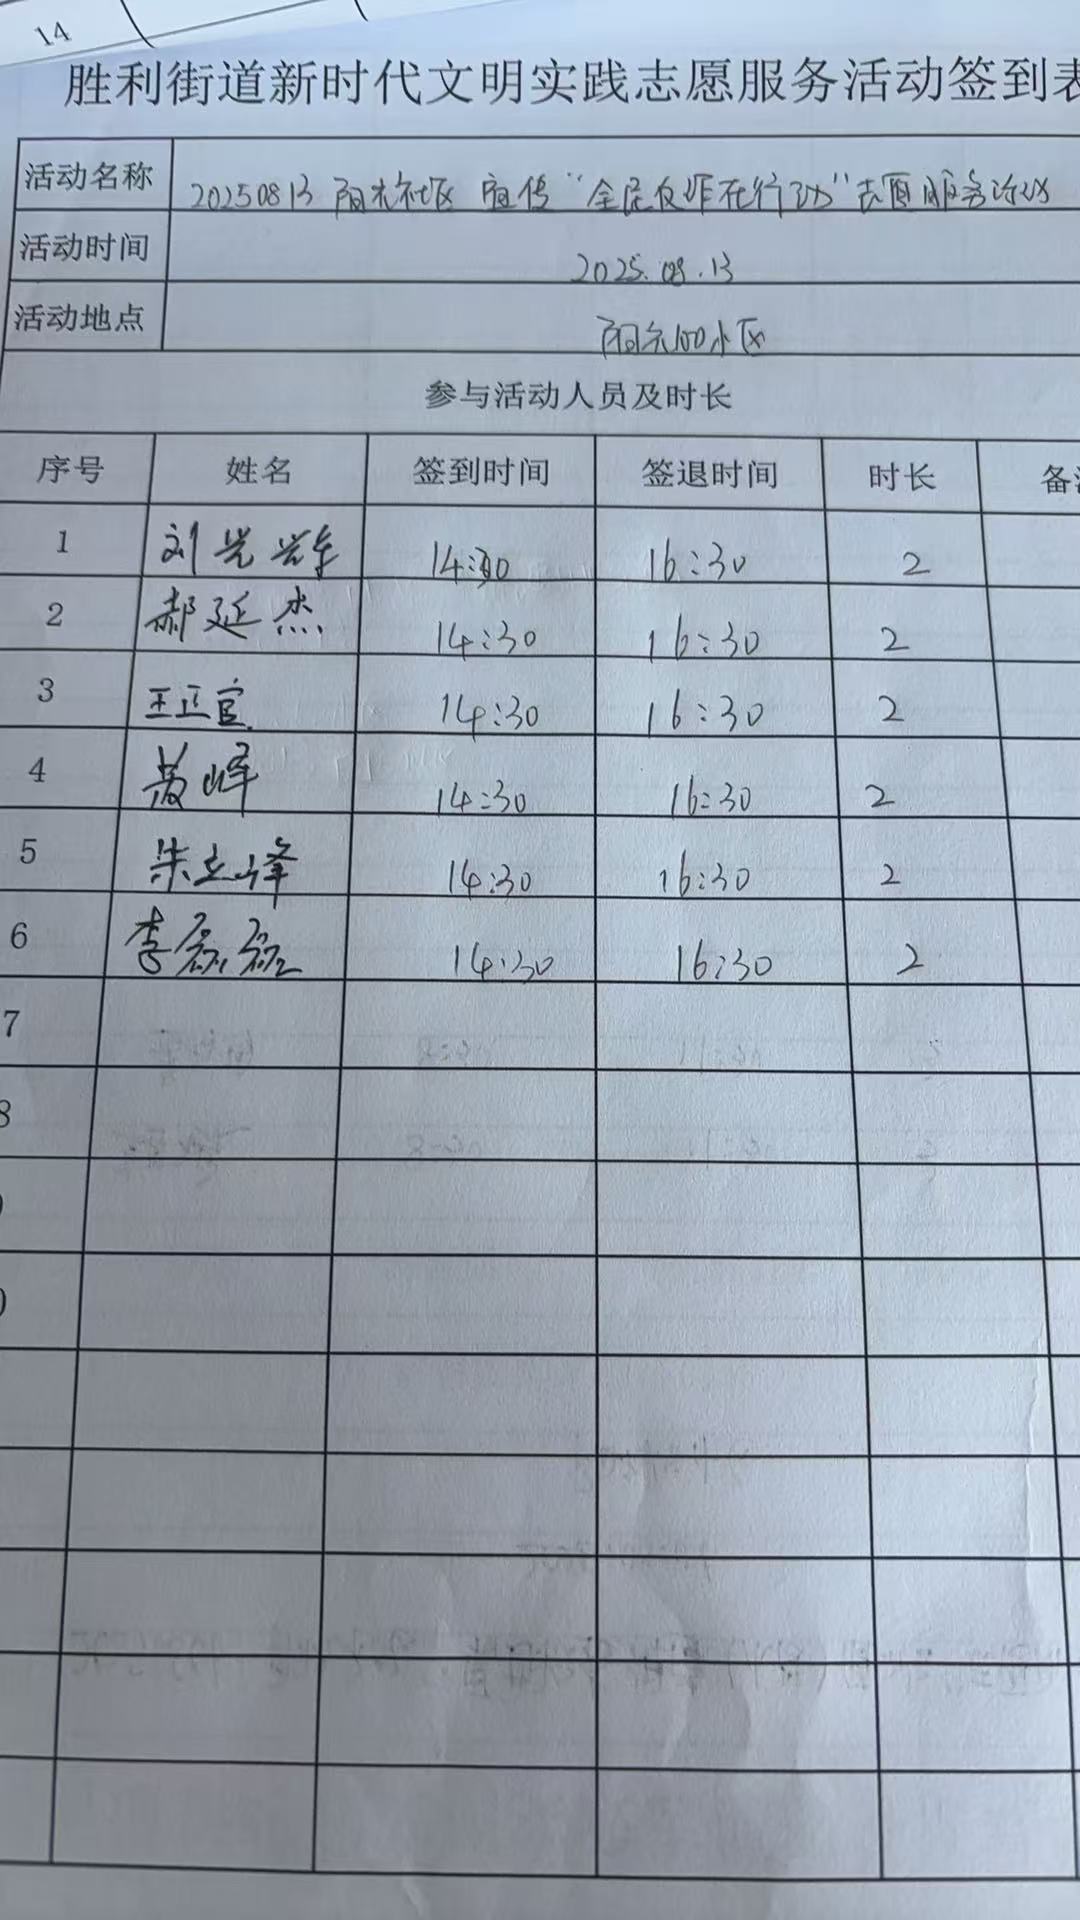 14
胜利街道新时代文明实践志愿服务活动签到表
活动名称 20250813 阳光社区 宣传“全民反诈在行动”志愿服务活动
活动时间 2025.08.13
活动地点 阳光100小区
参与活动人员及时长
序号 姓名 签到时间 签退时间 时长 备注
1 刘光 14:30 16:30 2
2 郝延杰 14:30 16:30 2
3 王正官 14:30 16:30 2
4 黄峰 14:30 16:30 2
5 朱立峰 14:30 16:30 2
6 李磊磊 14:30 16:30 2
7
8